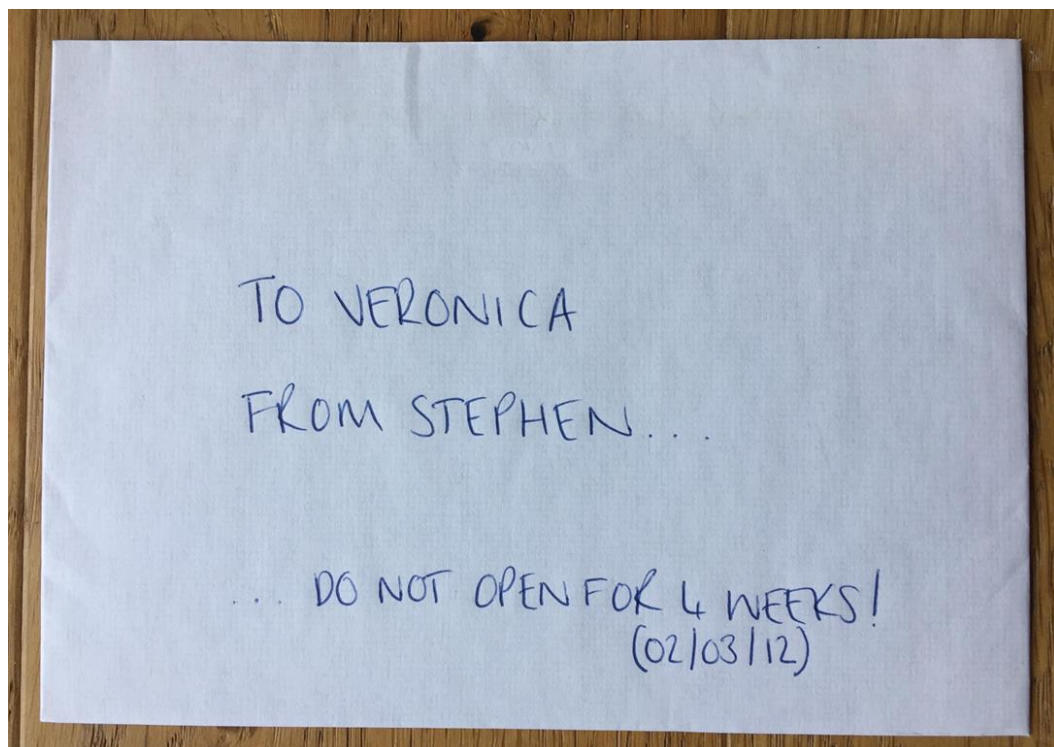 TO VERONICA
FROM STEPHEN....
... DO NOT OPEN FOR 4 WEEKS!
(02/03/12)